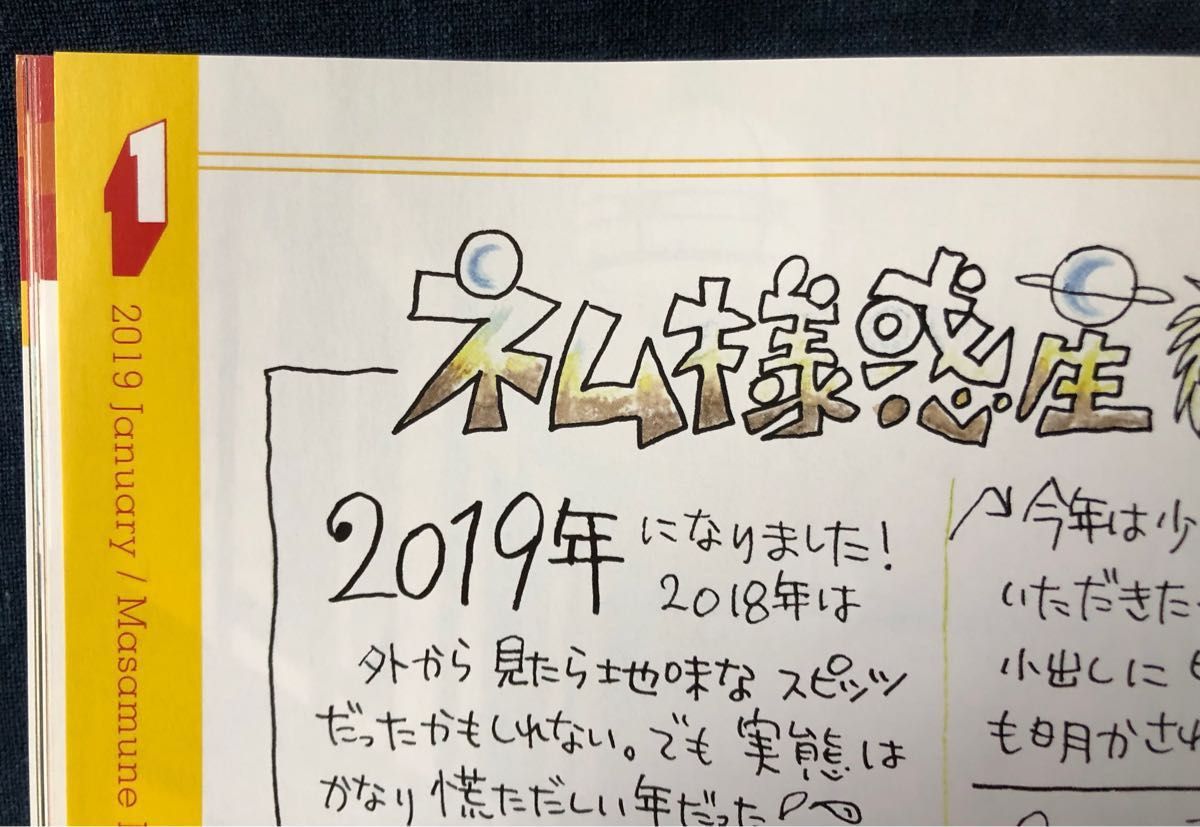 1
2019 January / Masamune
ネム様惑星
2019年になりました!
2018年は
外から見たら地味なスピッツ
だったかもしれない。でも実態は
かなり慌ただしい年だった
今年は少
いただきた
小出しに
も明かされ